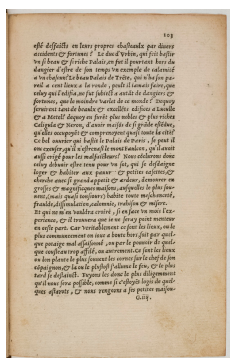 103
esté deffaicts en leurs propres chasteaux par divers
accidents & fortunes? Le duc d'Urbin, qui feit bastir
un si beau & si riche Palais, en fut il pourtant hors du
danger d'estre de son temps un exemple de calamité
à un chascun? Le beau Palais de Trẽte, qui n'ha son pareil
à cent lieues à la ronde, peult il iamais faire, que
celuy qui l'edifia, ne fut subiect à autãt de dangiers &
fortunes, que le moindre varlet de ce monde? Dequoy
servirent tant de beaux & excellẽs edifices à Luculle
& à Metel? dequoy
Caligula & Neron, d'avoir maisõs de si grãde estẽdue,
qu'elles occupoyẽt & comprenoyẽt quasi toute la cité?
Ce bel ouvrier qui bastit le Palais de Paris,
exempt, qu'il n'estrenast le mont Faulcon, qu'il avoit
aussi erigé pour les malfaicteurs? Nous
estre tenu pour un sot, qui se
loger & habiter aux pauvres & petites casettes, &
cherche avec si grand appetit & ardeur, demourer en
grosses & magnifiques maisons, ausquelles le plus souvent,
(mais quasi tousiours) habite toute meschanceté,
fraulde, dissimulation, calomnie, trahison & misere.
Et qui ne m'en vouldra croire, si en face un mois l'experience,
& il trouvera que ie ne seray point menteur
en ceste part. Car veritablement ce sont les lieux, où le
plus communement on vient à bouts hors, soit par quelque
potaige mal assaisonné, ou par le pouvoir de quelque
cousteau trop affilé, ou autrement. Ce sont les lieux
ou lon plante le plus souvent les cornes sur le chef de son
cõpaignon, & là ou le plustost s'allume le feu, & le plus
tard se destainct. Fuyons les donc le plus diligemment
qu'il nous sera possible, comme si c'estoyẽt loges de quelques
& nous rengeons à ces petites maison-
G iiij.